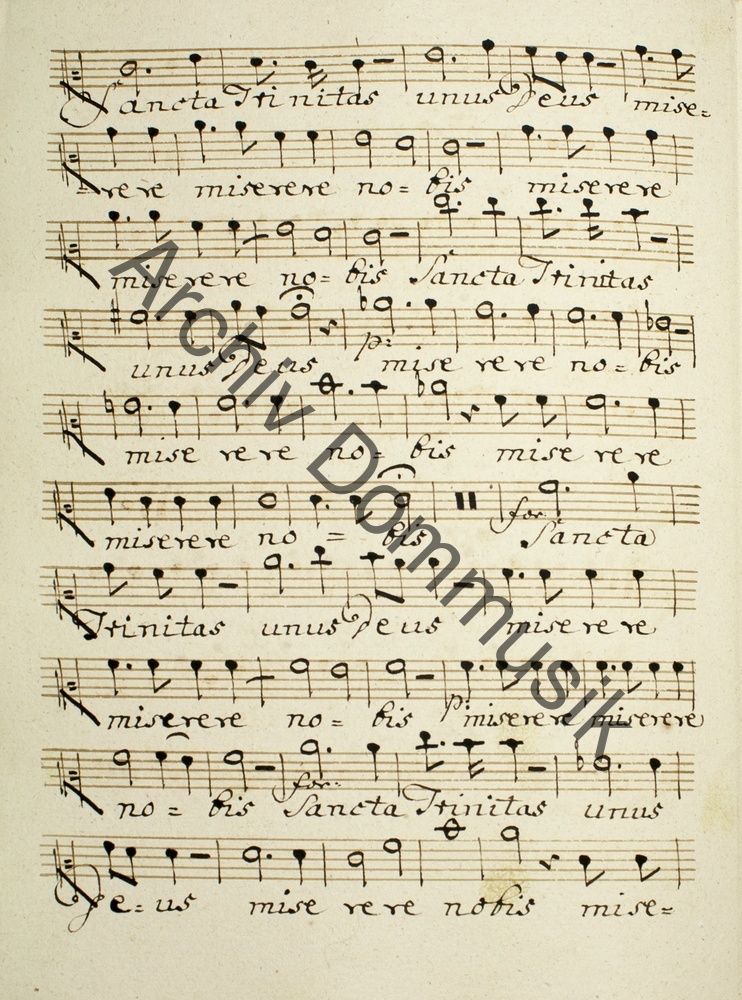 Sancta Trinitas unus Deus mise=
rere miserere no= bis miserere
miserere no= bis Sancta Trinitas
unus Deus p: mise rere no= bis
mise rere no= bis mise rere
miserere no = bis for: Sancta
Trinitas unus Deus mise re re
miserere no= bis p: miserere miserere
no= bis for: Sancta Trinitas unus
De=us mise rere nobis mise=
Archiv Dommusik